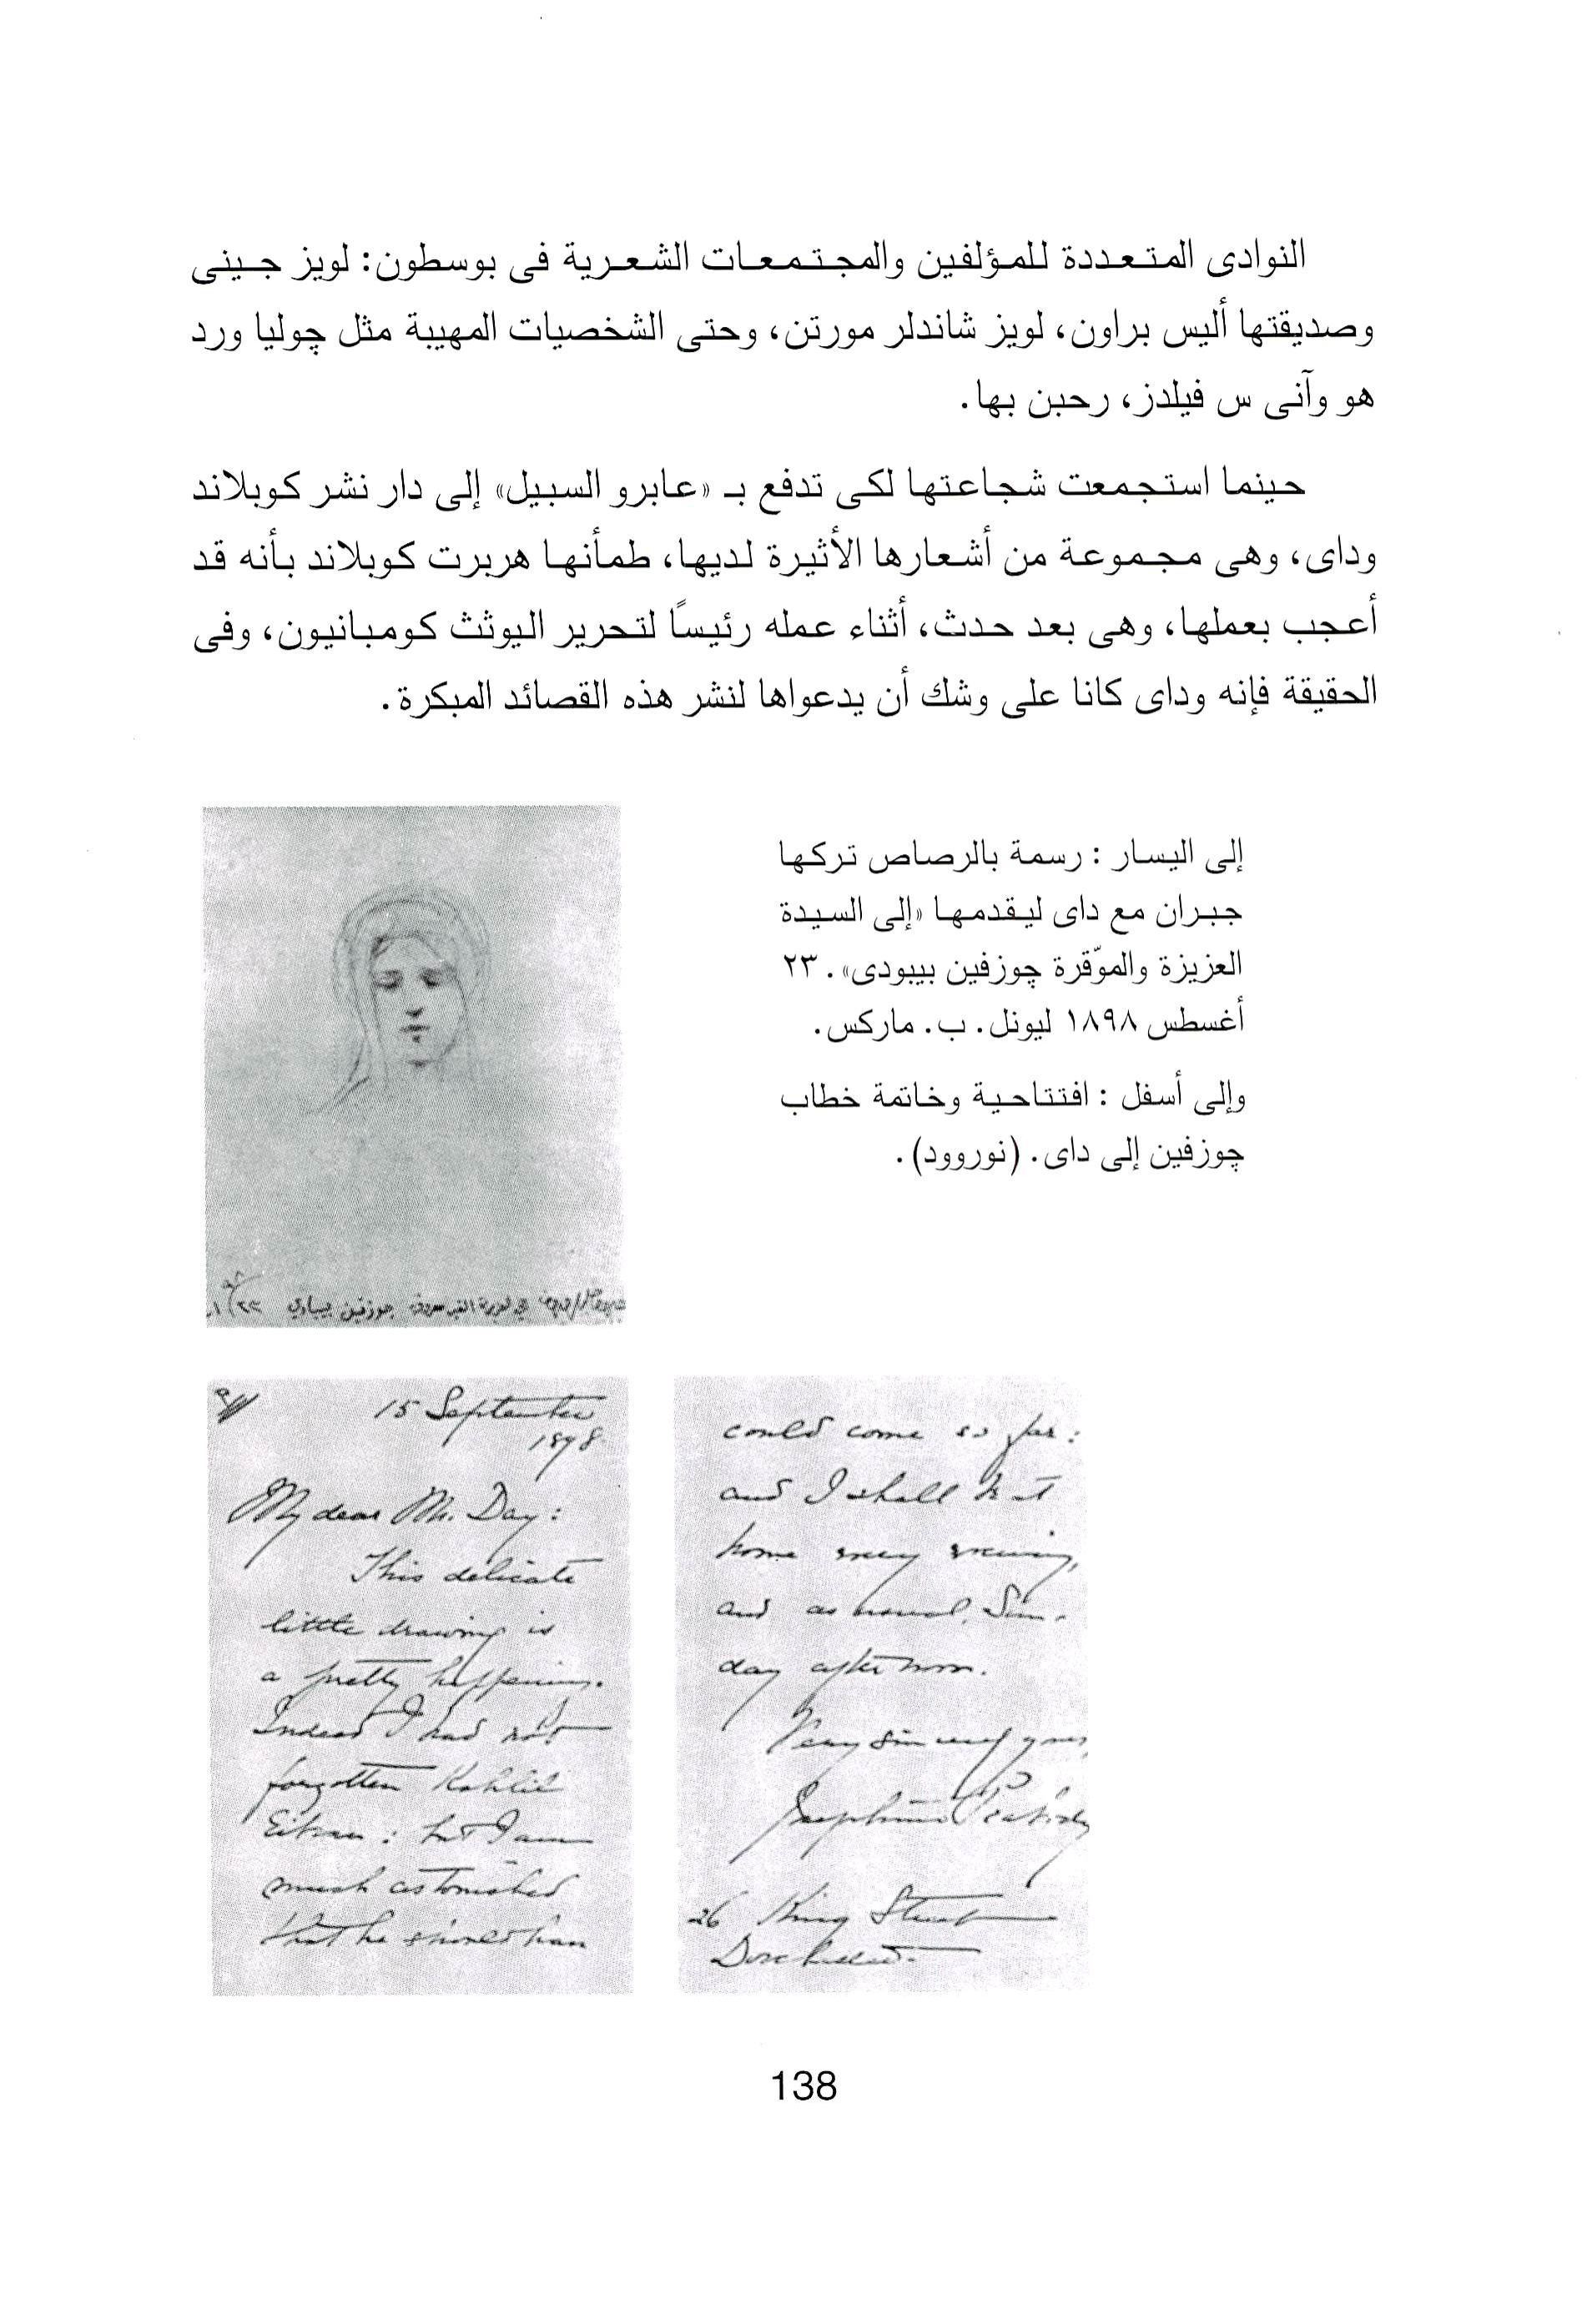 النوادى المتعددة للمؤلفين والمجتمعات الشعرية فى بوسطون: لويز جينى
وصديقتها أليس براون، لويز شاندلر مورتن، وحتى الشخصيات المهيبة مثل چوليا ورد
هو وآنى س فيلدز، رحبن بها.
حينما استجمعت شجاعتها لكى تدفع بـ «عابرو السبيل» إلى دار نشر كوبلاند
وداى، وهى مجموعة من أشعارها الأثيرة لديها، طمأنها هربرت كوبلاند بأنه قد
أعجب بعملها، وهى بعد حدث، أثناء عمله رئيسًا لتحرير اليوثث كومبانيون، وفى
الحقيقة فإنه وداى كانا على وشك أن يدعواها لنشر هذه القصائد المبكرة.
إلى اليسار : رسمة بالرصاص تركها
جبران مع داى ليقدمها «إلى السيدة
العزيزة والموّقرة چوزفين بيبودى». ٢٣
أغسطس ١٨٩٨ ليونل. ب. ماركس.
وإلى أسفل : افتتاحية وخاتمة خطاب
چوزفين إلى داى. (نوروود).
جوزفين بيبادي
15 September
1898.
My dear Mr. Day:
This delicate
little drawing is
a pretty happening.
Indeed I had not
forgotten Kahlil
: but I am
much astonished
that he should have
could come so far:
and I shall be at
home every evening,
and as usual, Sun-
day afternoon.
Very sincerely yours,
Josephine Peabody
26 King Street
Dorchester.
138